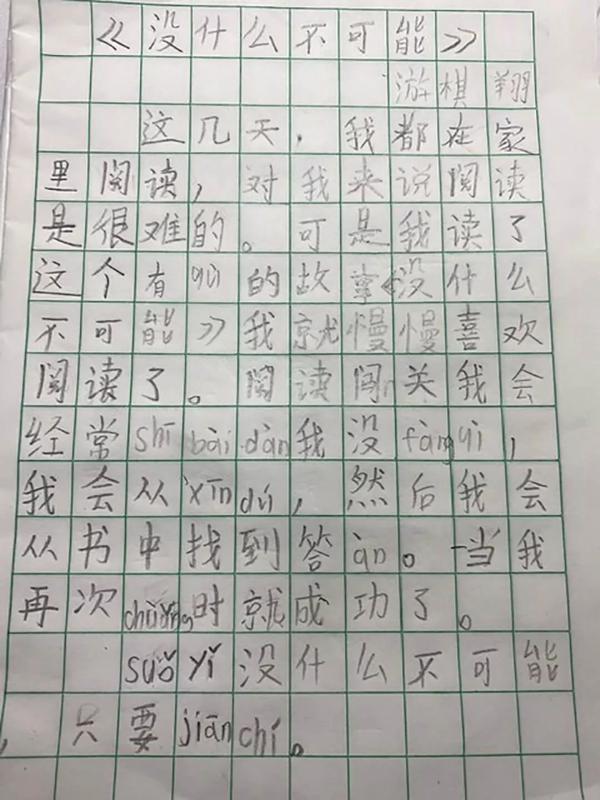 《没什么不可能》
游棋翔
这几天，我都在家
里阅读，对我来说阅读
是很难的。可是我读了
这个有qù的故事《没什么
不可能》我就慢慢喜欢
阅读了。阅读闯关我会
经常shī bài，dàn我没fàng qì，
我会从xīn dú，然后我会
从书中找到答àn。当我
再次chuǎng时就成功了。
suǒ yǐ没什么不可能
，只要jiān chí。